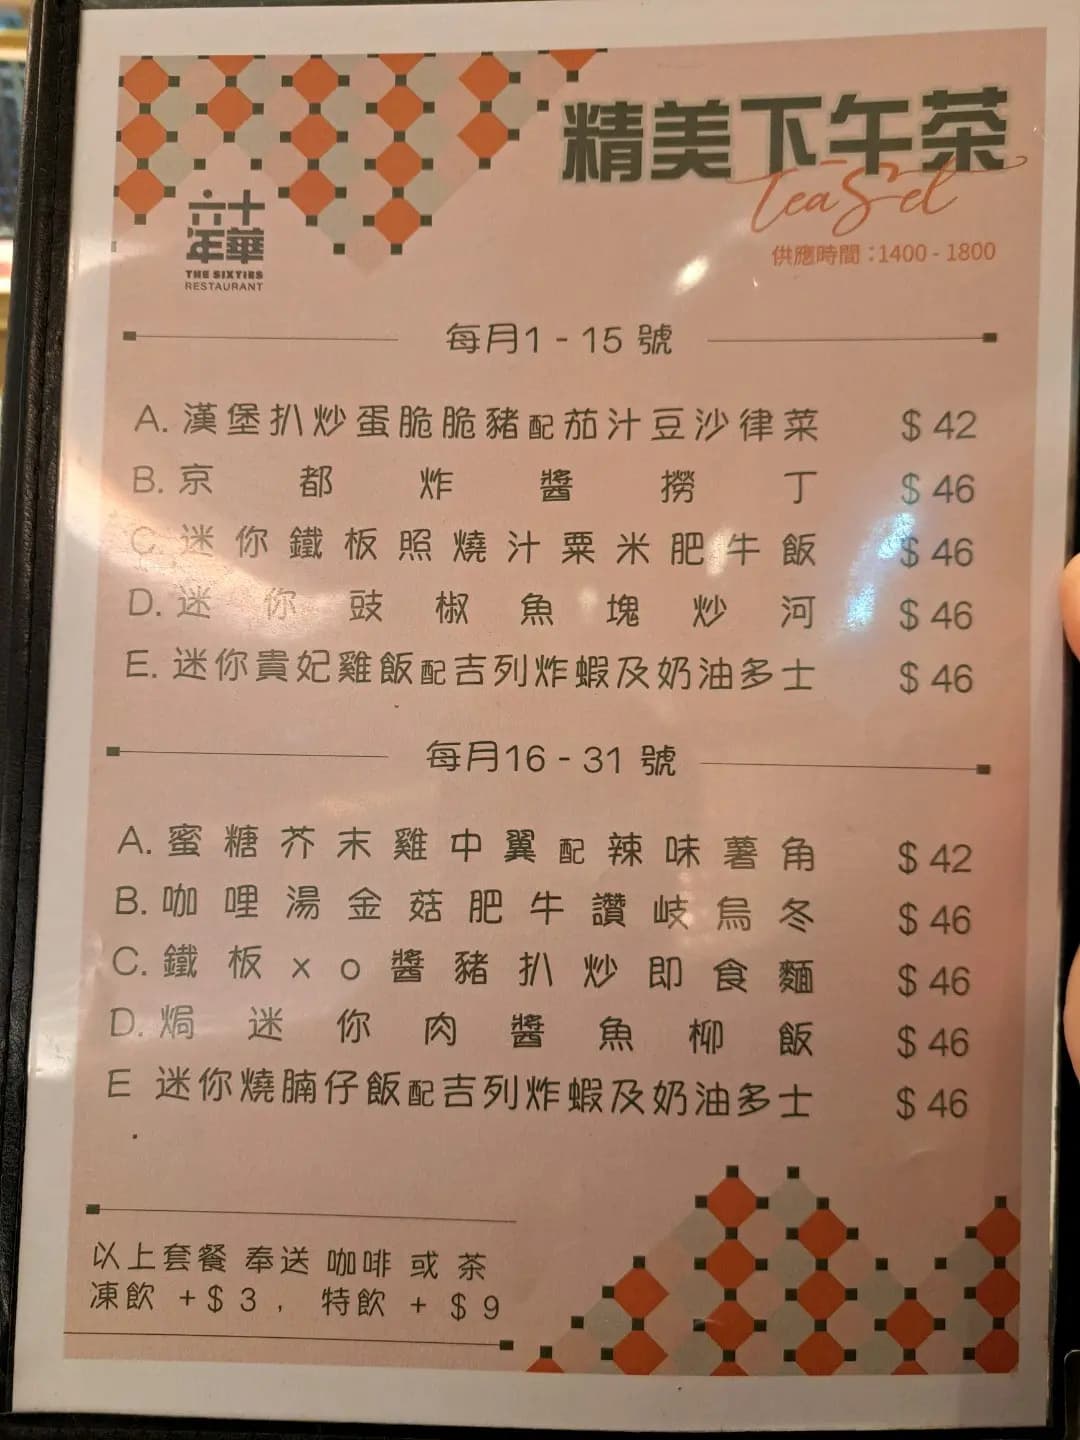 精美下午茶
Tea Set
供應時間：1400 - 1800
六十
年華
THE SIXTIES
RESTAURANT
每月1 - 15 號
A. 漢堡扒炒蛋脆脆豬配茄汁豆沙律菜 $ 42
B. 京都炸醬撈丁 $ 46
C. 迷你鐵板照燒汁粟米肥牛飯 $ 46
D. 迷你豉椒魚塊炒河 $ 46
E. 迷你貴妃雞飯配吉列炸蝦及奶油多士 $ 46
每月16 - 31 號
A. 蜜糖芥末雞中翼配辣味薯角 $ 42
B. 咖哩湯金菇肥牛讚岐烏冬 $ 46
C. 鐵板xo醬豬扒炒即食麵 $ 46
D. 焗迷你肉醬魚柳飯 $ 46
E . 迷你燒腩仔飯配吉列炸蝦及奶油多士 $ 46
以上套餐 奉送 咖啡 或 茶
凍飲 +$ 3 , 特飲 + $ 9